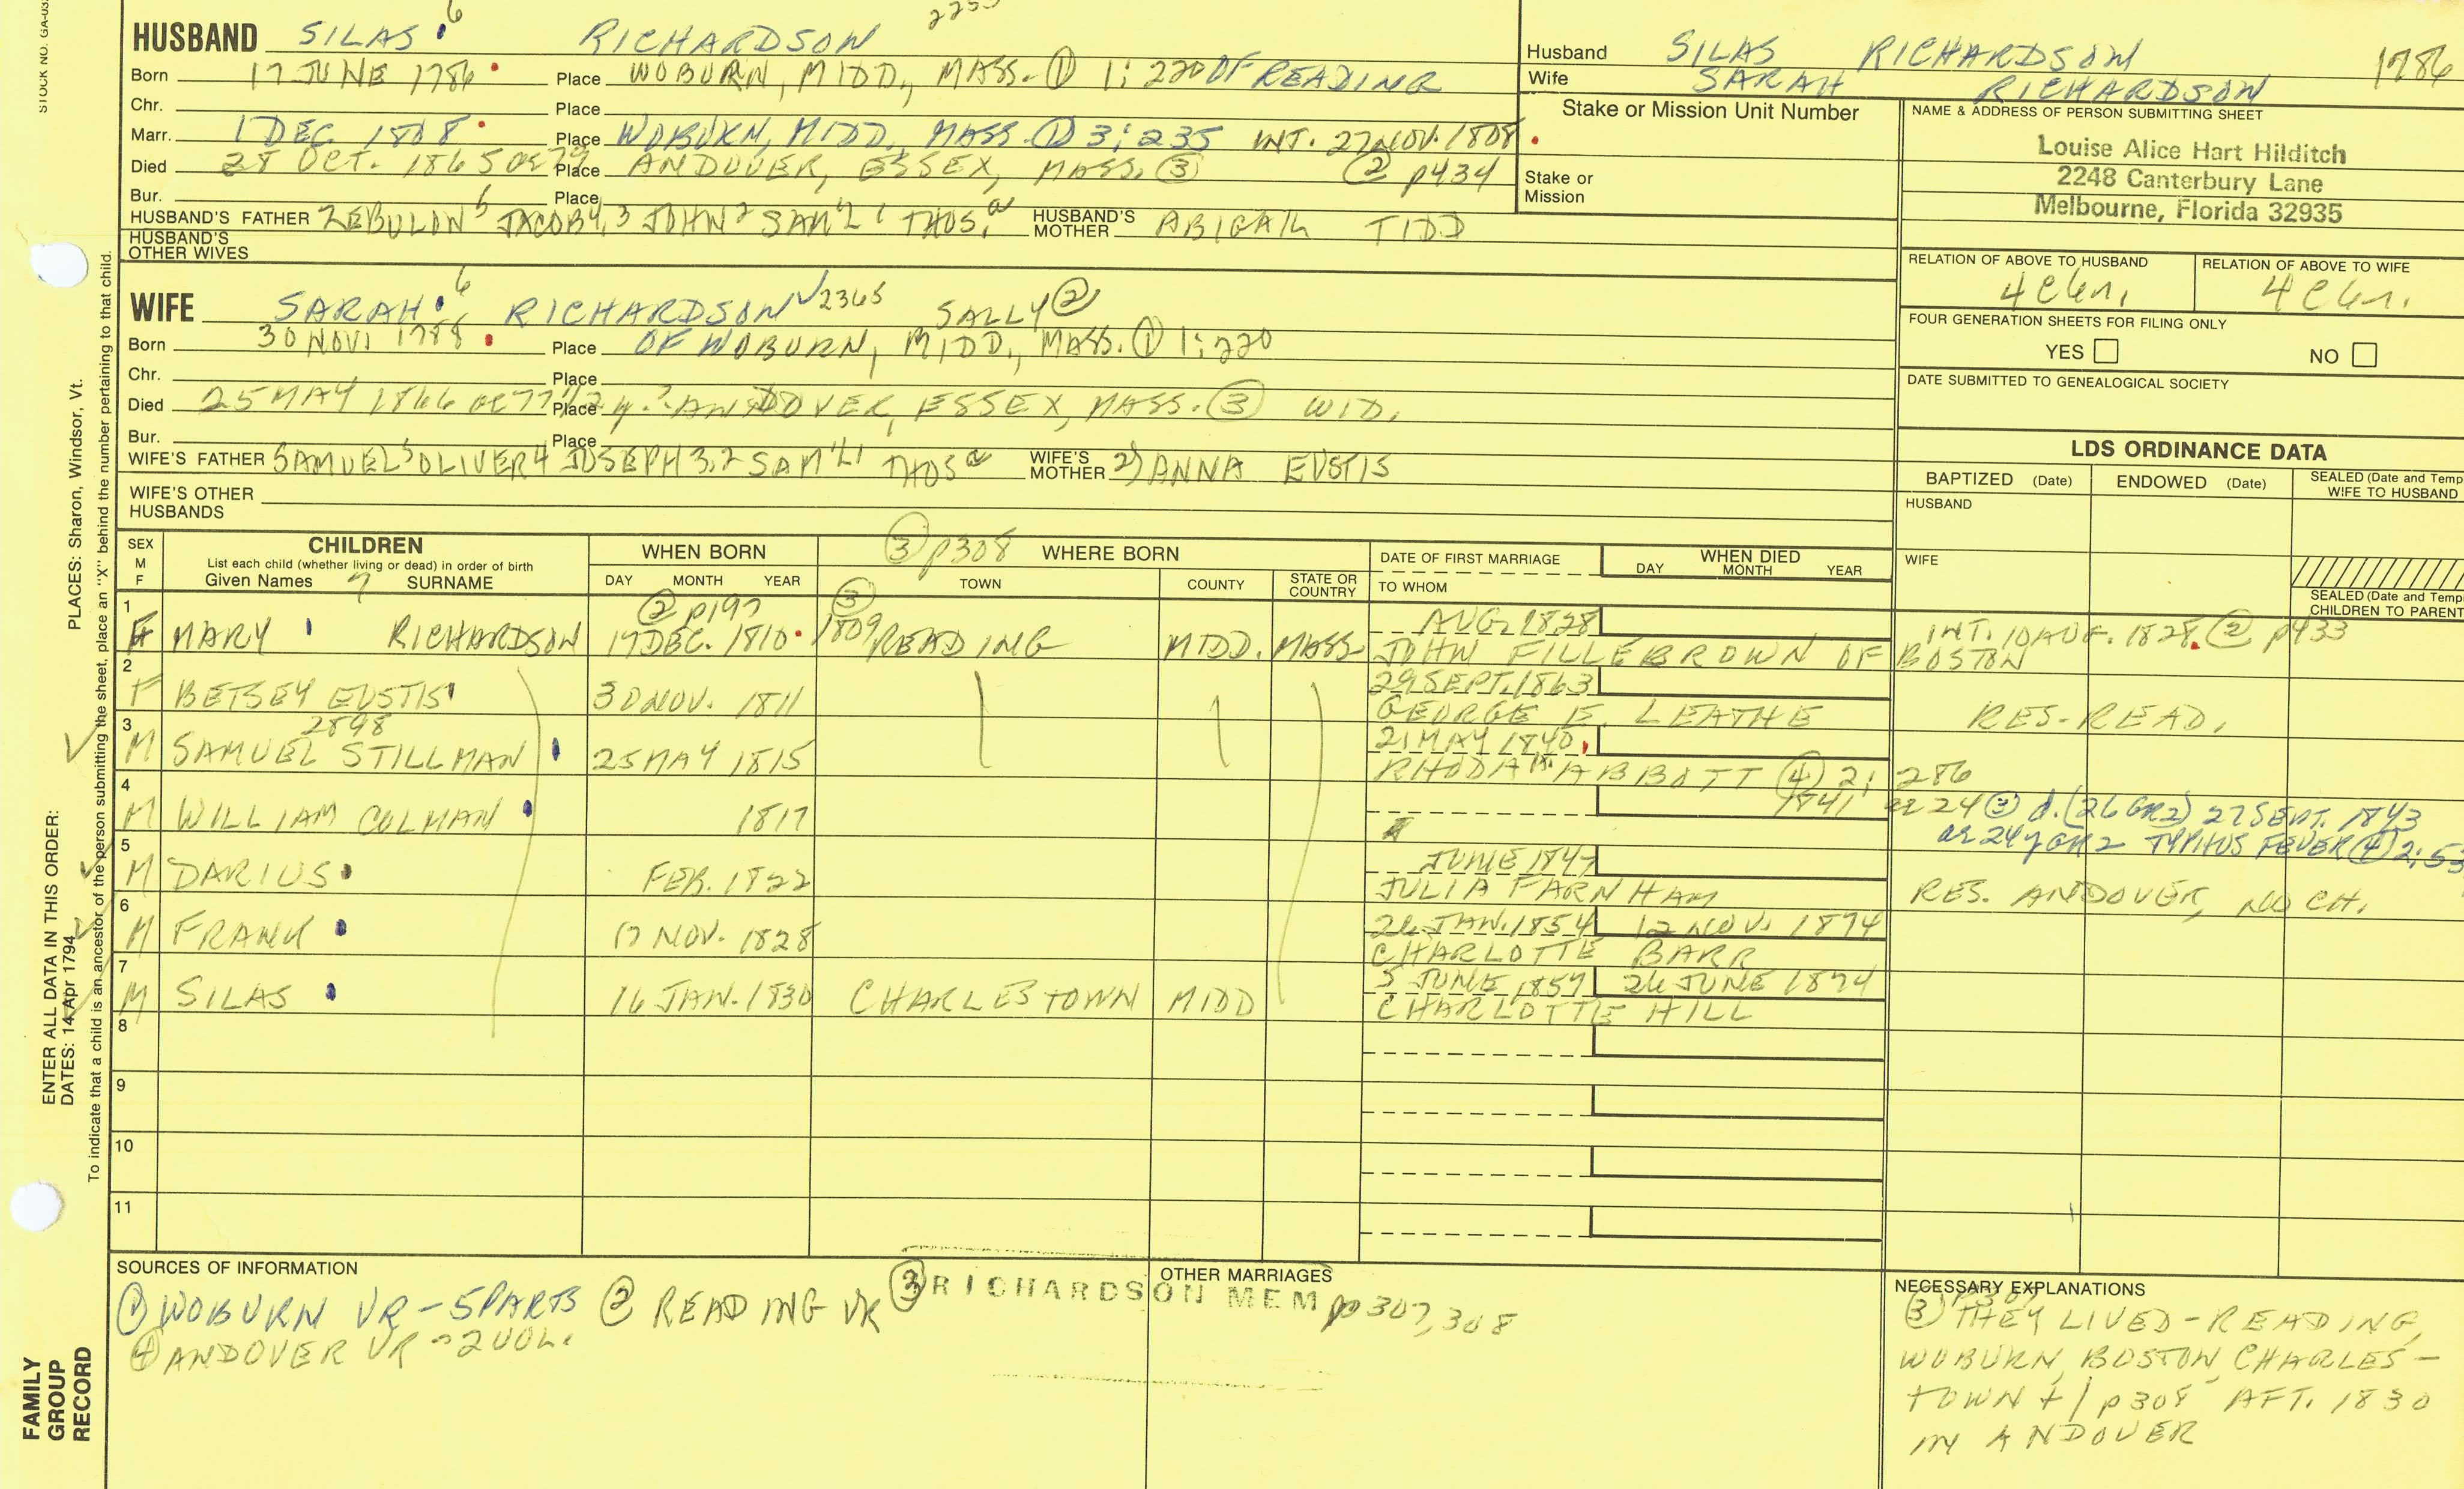 STOCK NO. GA-03
HUSBAND SILAS 6 RICHARDSON
Born 17 JUNE 1786 Place WOBURN, MIDD., MASS. ① 1:220 OF READING
Chr. Place
Marr. 1 DEC. 1808 Place WOBURN, MIDD., MASS. ① 3:235 INT. 27 NOV. 1808
Died 28 OCT. 1865 ae 79 Place ANDOVER, ESSEX, MASS. ③ ② p434
Bur. Place
HUSBAND'S FATHER ZEBULON 5 JACOB 4,3 JOHN 2 SAM'L 1 THOS. a HUSBAND'S MOTHER ABIGAIL TIDD
HUSBAND'S OTHER WIVES
Husband SILAS RICHARDSON 1786
Wife SARAH RICHARDSON
Stake or Mission Unit Number
Stake or Mission
NAME & ADDRESS OF PERSON SUBMITTING SHEET
Louise Alice Hart Hilditch
2248 Canterbury Lane
Melbourne, Florida 32935
RELATION OF ABOVE TO HUSBAND RELATION OF ABOVE TO WIFE
FOUR GENERATION SHEETS FOR FILING ONLY
YES NO
DATE SUBMITTED TO GENEALOGICAL SOCIETY
WIFE SARAH 6 RICHARDSON 2365 SALLY ②
Born 30 NOV. 1788 Place OF WOBURN, MIDD., MASS. ① 1:220
Chr. Place
Died 25 MAY 1866 ae 77 1/2 y. Place ANDOVER, ESSEX, MASS. ③ WID.
Bur. Place
WIFE'S FATHER SAMUEL 5 OLIVER 4 JOSEPH 3,2 SAM'L 1 THOS a WIFE'S MOTHER 2) ANNA EUSTIS
WIFE'S OTHER HUSBANDS
LDS ORDINANCE DATA
BAPTIZED (Date) ENDOWED (Date) SEALED (Date and Temp
WIFE TO HUSBAND
HUSBAND
WIFE
SEALED (Date and Temp
CHILDREN TO PARENT
SEX M F CHILDREN
List each child (whether living or dead) in order of birth
Given Names 7 SURNAME
WHEN BORN
DAY MONTH YEAR
③ p308 WHERE BORN
TOWN COUNTY STATE OR COUNTRY
DATE OF FIRST MARRIAGE
TO WHOM
WHEN DIED
DAY MONTH YEAR
② p197 ③
1 F MARY RICHARDSON 17 DEC. 1810 1809 READING MIDD. MASS. AUG. 1828 INT. 10 AUG. 1828 ② p433
JOHN FILLEBROWN OF BOSTON
2 F BETSEY EUSTIS 30 NOV. 1811 29 SEPT. 1863
GEORGE E. LEATHE RES. READ.
2898
3 M SAMUEL STILLMAN 25 MAY 1815 21 MAY 1840
RHODA ABBOTT ④ 2:286
4 M WILLIAM COLMAN 1817 1841 ae 24 ③ d. (26 GR2) 27 SEPT. 1843
ae 24y GR2 TYPHUS FEVER ④ 2:53
5 M DARIUS FEB. 1822 JUNE 1847
JULIA FARNHAM RES. ANDOVER, NO CH.
6 M FRANK 17 NOV. 1828 26 JAN. 1854 12 NOV. 1874
CHARLOTTE BARR
7 M SILAS 16 JAN. 1830 CHARLESTOWN MIDD 5 JUNE 1857 26 JUNE 1874
CHARLOTTE HILL
8
9
10
11
SOURCES OF INFORMATION
① WOBURN VR - 5 PARTS ② READING VR ③ RICHARDSON MEM pp 307, 308
④ ANDOVER VR - 2 VOL.
OTHER MARRIAGES
NECESSARY EXPLANATIONS
③ p307
THEY LIVED - READING,
WOBURN, BOSTON, CHARLES-
TOWN + / p308 AFT. 1830
IN ANDOVER
FAMILY
GROUP
RECORD
ENTER ALL DATA IN THIS ORDER:
DATES: 14 Apr 1794
PLACES: Sharon, Windsor, Vt.
To indicate that a child is an ancestor of the person submitting the sheet, place an "X" behind the number pertaining to that child.